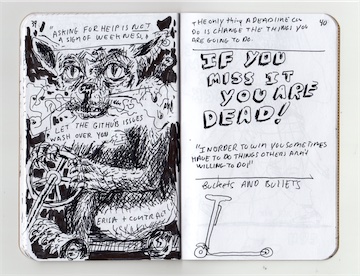 39
"ASKING FOR HELP IS NOT
A SIGN OF WEEKNESS."
LET THE GITHUB ISSUES
WASH OVER YOU
ERISA + CONTRACT
40
THE ONLY THING A DEADLINE CAN
DO IS CHANGE THE THINGS YOU
ARE GOING TO DO.
IF YOU
MISS IT
YOU ARE
DEAD!
"IN ORDER TO WIN YOU SOMETIMES
HAVE TO DO THINGS OTHERS ARN'T
WILLING TO DO!"
BUCKETS AND BULLETS